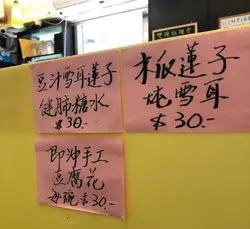 豆汁雪耳蓮子
健肺糖水
$30.-
木瓜蓮子
炖雪耳
$30.-
即沖手工
豆腐花
每碗$30.-